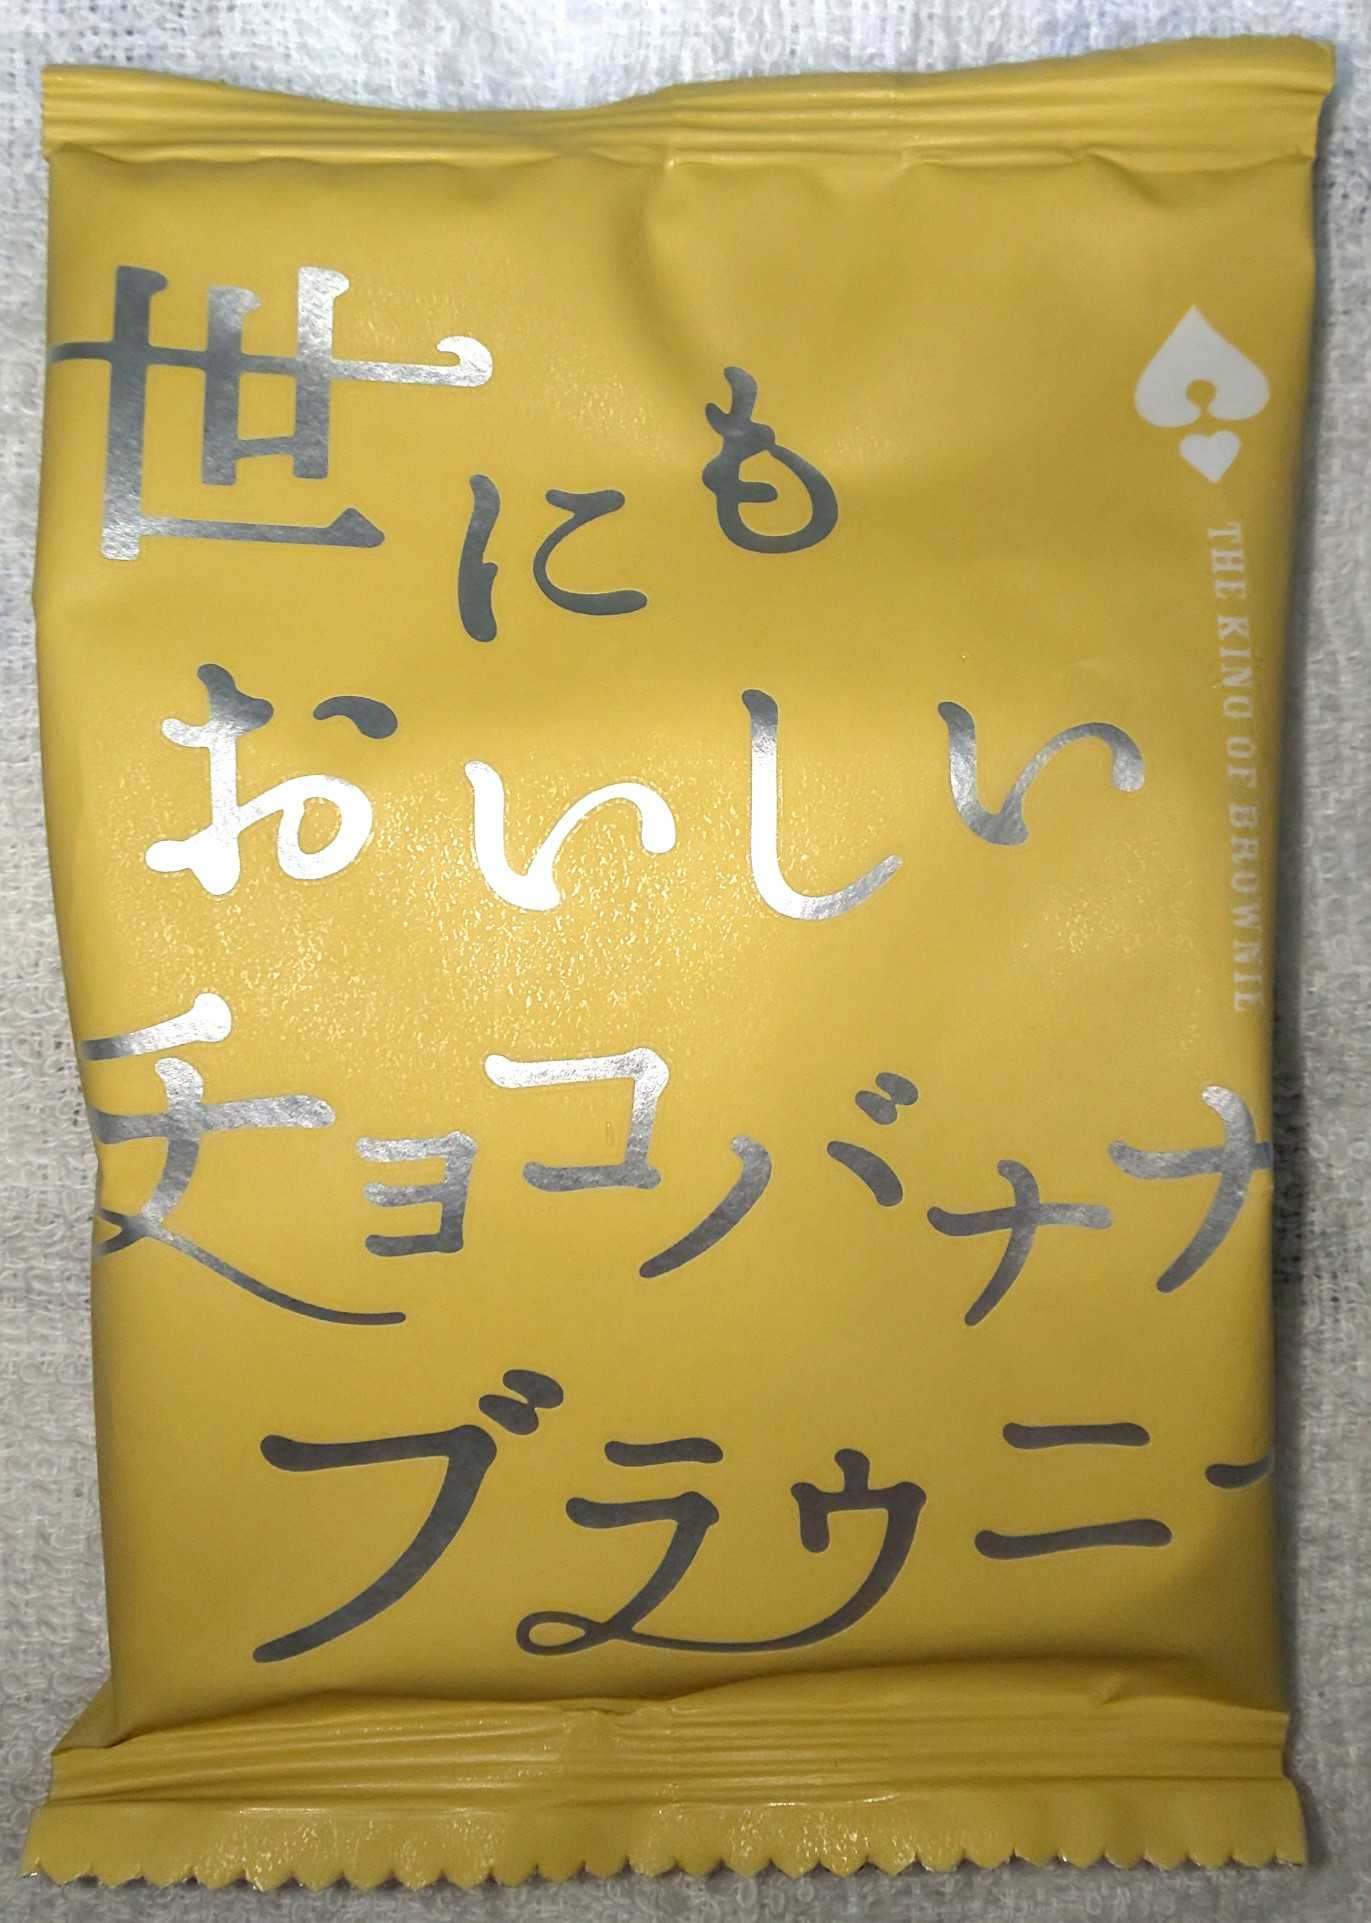 世にも
おいしい
チョコバナナ
ブラウニー
THE KING OF BROWNIE